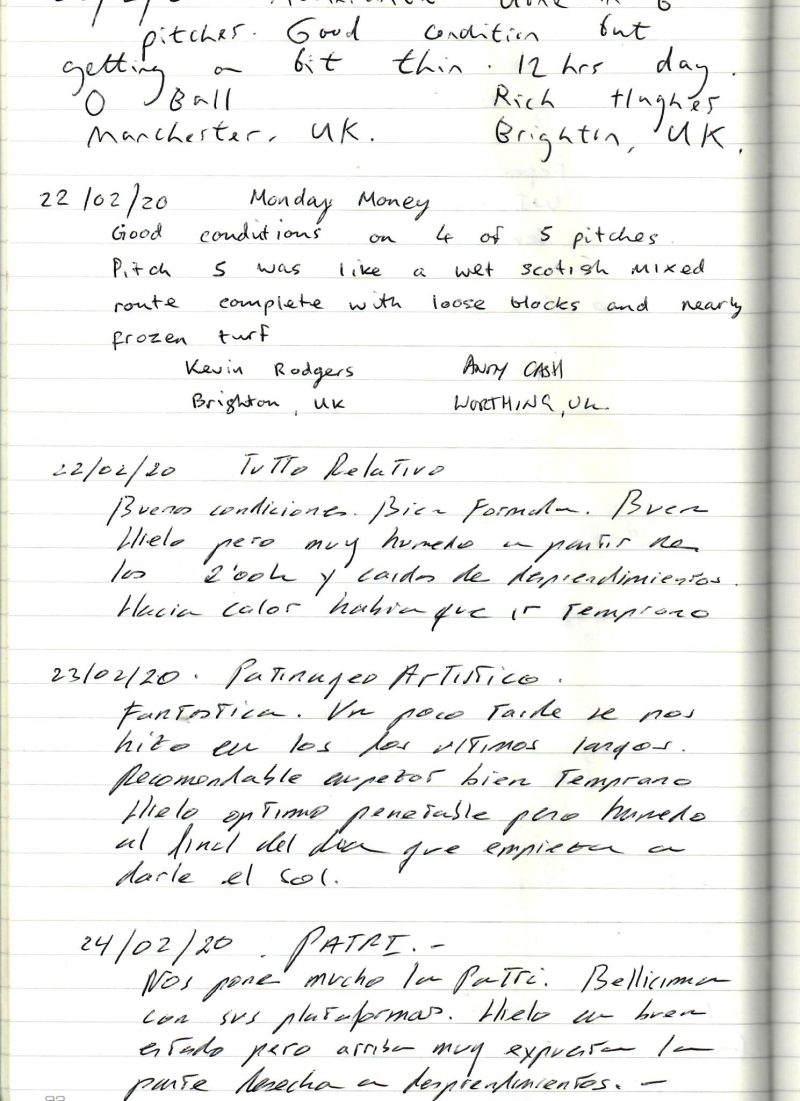 pitches. Good condition but
getting a bit thin. 12 hrs day.
O Ball Rich Hughes
Manchester, UK. Brighton, UK.
22/02/20 Monday Money
Good conditions on 4 of 5 pitches.
Pitch 5 was like a wet scotish mixed
route complete with loose blocks and nearly
frozen turf
Kevin Rodgers ANDY CASH
Brighton, UK WORTHING, UK.
22/02/20 Tutto Relativo
Buenas condiciones. Bien Formada. Buen
Hielo pero muy humedo a partir de
las 2'00h y caidas de desprendimientos.
Hacia calor habia que ir Temprano
23/02/20. Patinageo Artistico.
Fantastica. Un poco tarde se nos
hizo en los dos ultimos largos.
Recomendable empezar bien Temprano
Hielo optimo penetable pero humedo
al final del dia que empieza a
darle el sol.
24/02/20. PATRI.-
Nos pone mucho la Patri. Bellicima
con sus plataformas. Hielo en buen
estado pero arriba muy expuesta la
parte derecha a desprendimientos.-